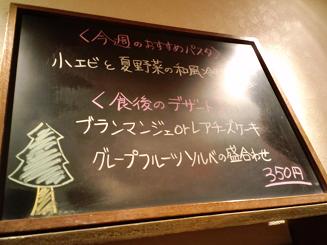 <今週のおすすめパスタ>
小エビと夏野菜の和風
<食後のデザート
ブランマンジェorレアチーズケーキ
グレープフルーツソルベの盛合わせ
350円